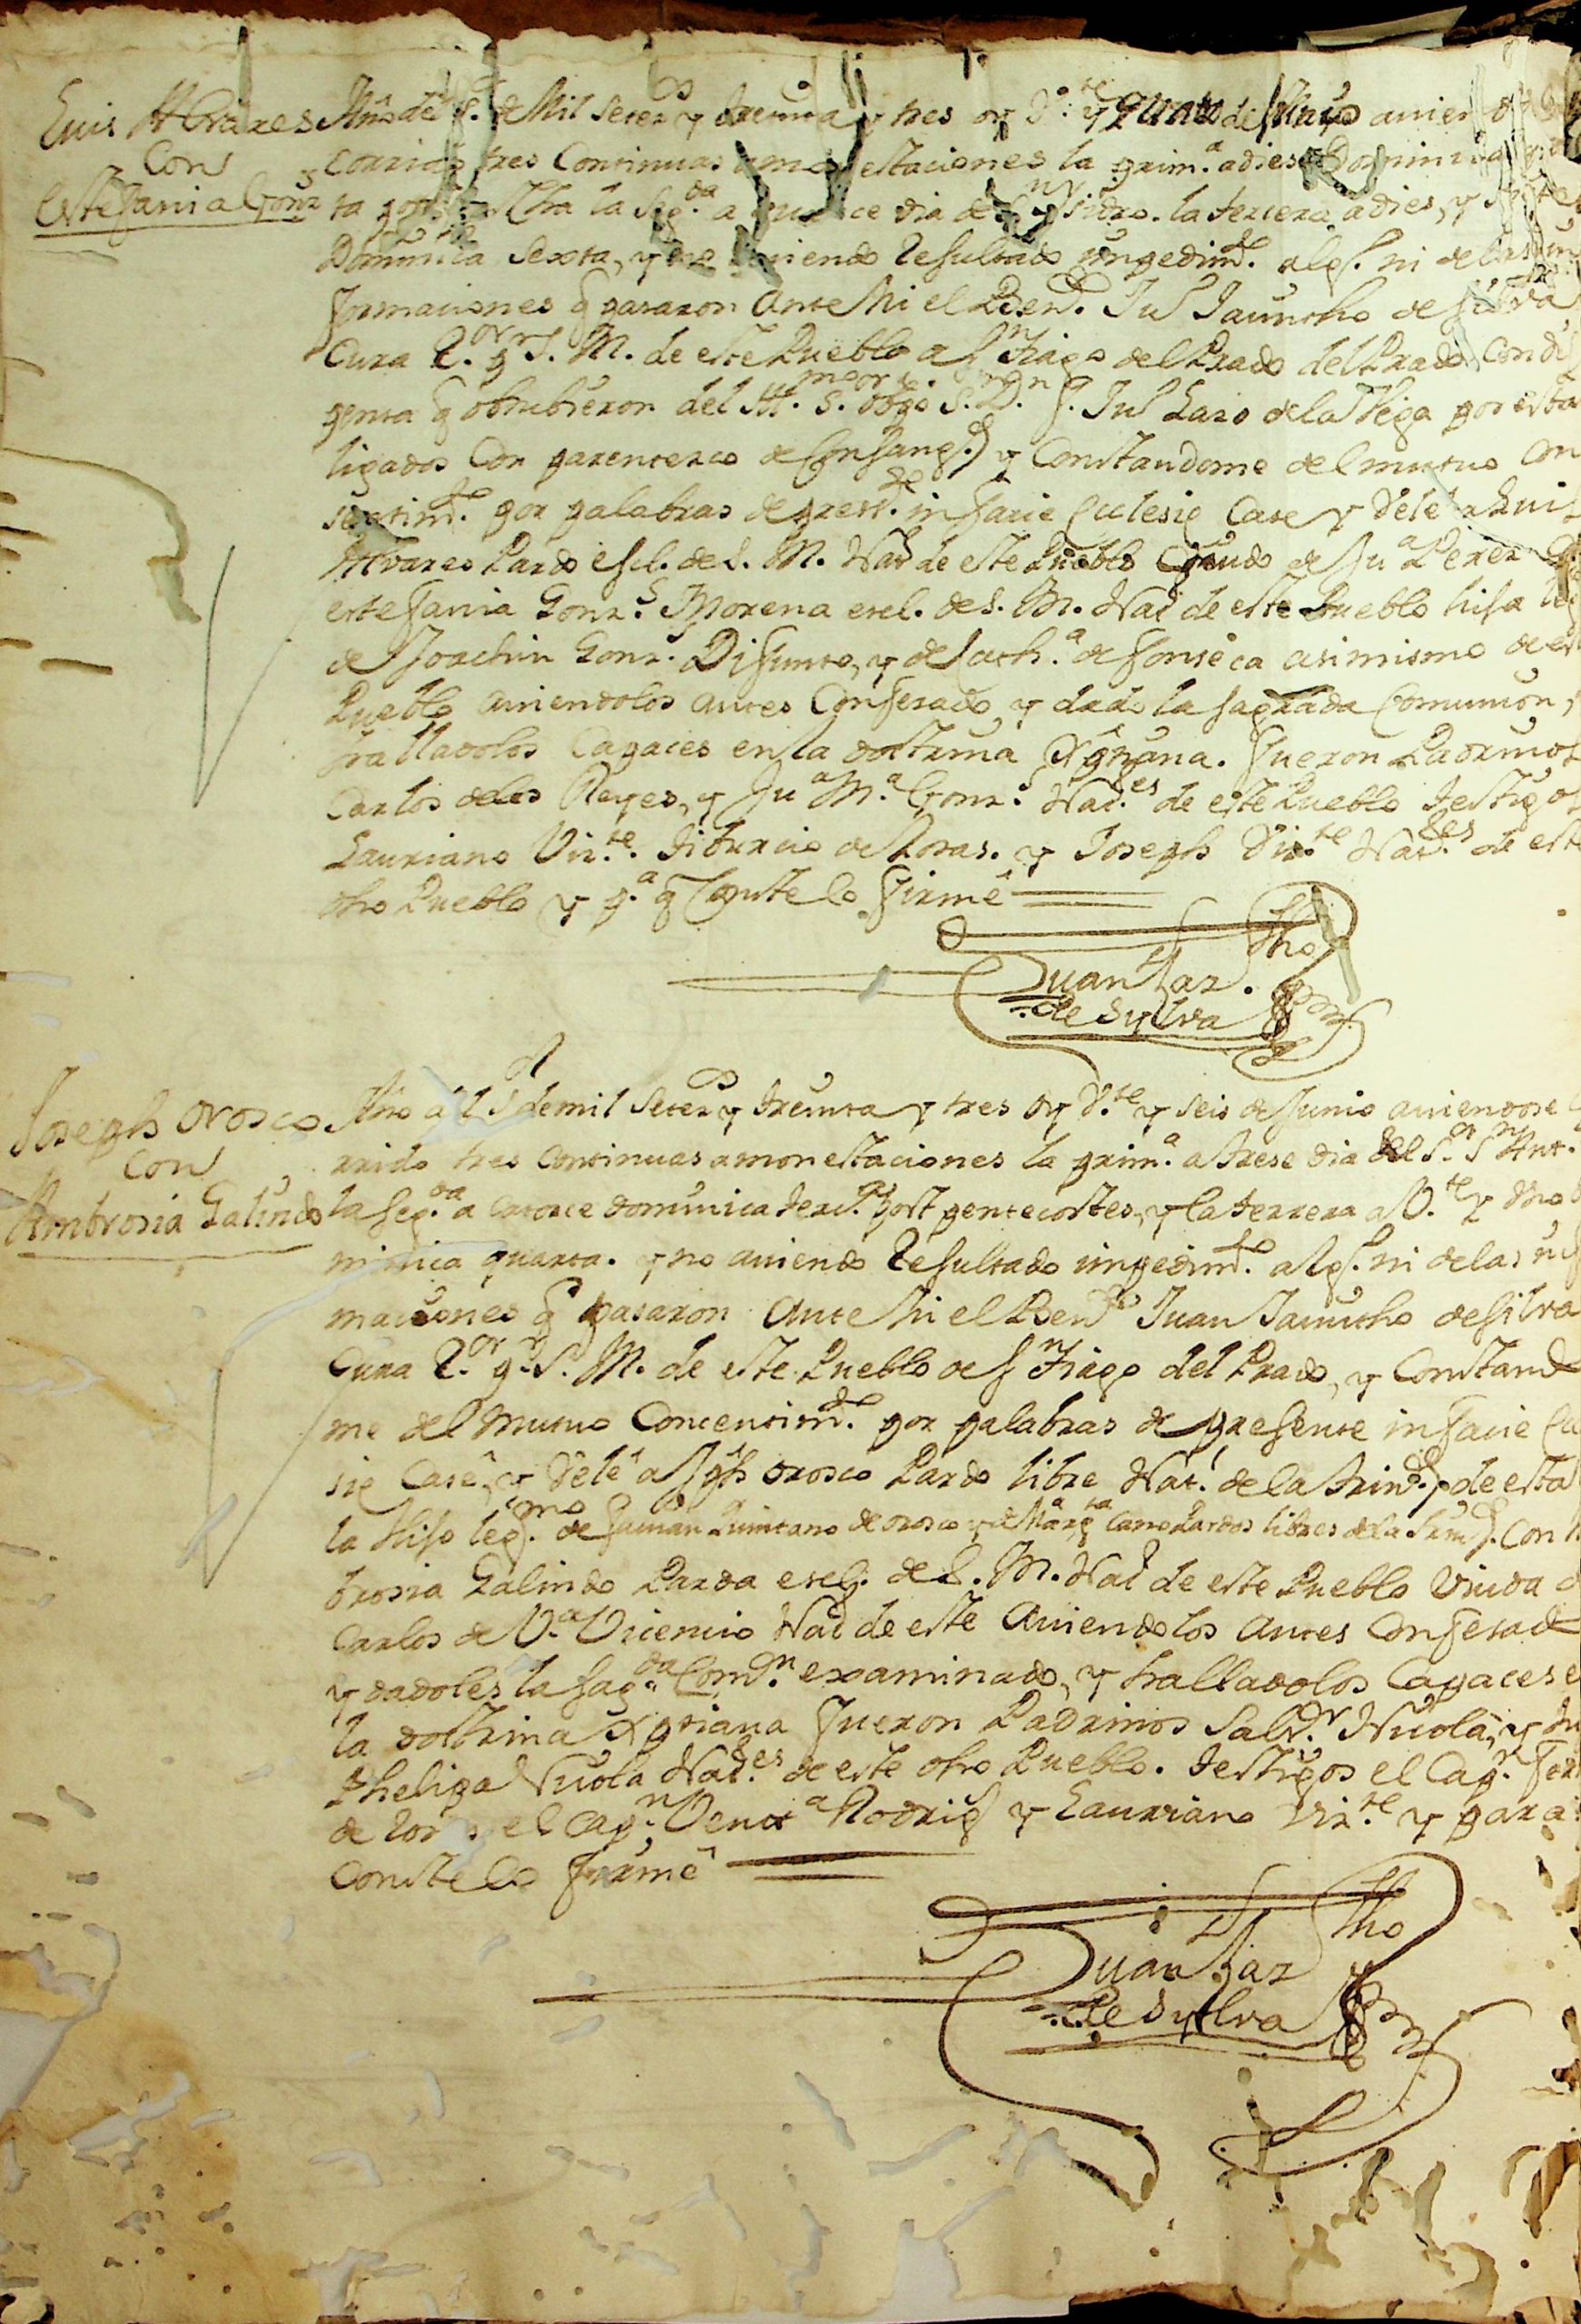 Luis Albares
Con
Estefania Gonz.s
Año del S. de Mil Setez.os y treinta y tres oy V.te y quatro de Mayo avien
corrido tres Continuas amonestaciones la prim.a a dies Dominica
ta post la seg.da a quince dia de S.n Ysidro. la tercera a dies, y siete
Dominica Sexta, y no aviendo Resultado impedim.to alg. ni de las in
formaciones q pasaron Ante Mi el B.er D. Ju Jacintho de Silva
Cura R.or p.r S. M. de este Pueblo de S.n Tiago del Prado del Prado, Con dis
pensa q obtubieron del Ill.mo S. Obpo S.or D.n Ju Laso de la Vega por estar
ligados Con parentesco de Consang.d y Constandome del mutuo Con
sentim.to por palabras de press.te in facie Eclesie Case y Vele a Luis
Alvares Pardo escl. de S. M. Nat de este Pueblo Viudo de Ju.a Perez
estefania Gonz.s Morena escl. de S. M. Nat de este Pueblo hija leg
de Joachin Gonz. Difunto, y de Cath.a de fonseca asimismo de este
Pueblo aviendolos antes Confesado, y dado la sagrada Comunion,
halladolos Capaces en la dottrina Xptiana. fueron Padrinos
Carlos de los Reyes, y Ju.a M.a Gonz. Nat.es de este Pueblo testigos
Lauriano Viz.te. tiburcio de Rosas. y Joseph Viz.te Nat.es de este
dho Pueblo y p.a q Conste lo firmé
Juan Jaz.tho
de Sylva
Joseph Orosco
Con
Ambrosia Galindo
Año del S.r de mil Setez.os y treinta y tres oy V.te y seis de Junio aviendose
rrido tres Continuas amonestaciones la prim.a a trese dia del S.or S.n Ant.
la seg.da a catorce dominica terc.a Post pentecostes, y la tercera a V.te y uno
minica quarta. y no aviendo Resultado impedim.to alg. ni de las inf
maciones q pasaron Ante Mi el B.er D Juan Jacintho de Silva
Cura R.or p.r S. M. de este Pueblo de S.n Tiago del Prado, y Constando
me del mutuo Concentim.to por palabras de presente in facie Ecl
sie Casé, y Velé a Jph orosco Pardo libre Nat. de la Trin.d de esta
la Hijo leg.mo de Julian Quintano de orosco y de Marg.ta Cano Pardos libres de la Trin.d Con
brosia Galindo Parda escl. de S. M. Nat de este Pueblo Viuda
Carlos de V.a Vicencio Nat de este Aviendolos Antes Confesado
y dadoles la sag.da Com.n examinado, y halladolos Capaces
la dottrina Xptiana fueron Padrinos Salv.r Nicola, y
Phelipa Nicola Nat.es de este dho Pueblo. testigos el Cap.n
de el Cap.n Vent.a Rodrig y Lauriano Viz.te y para
Conste lo firmé
Juan Jaz.tho
de Sylva